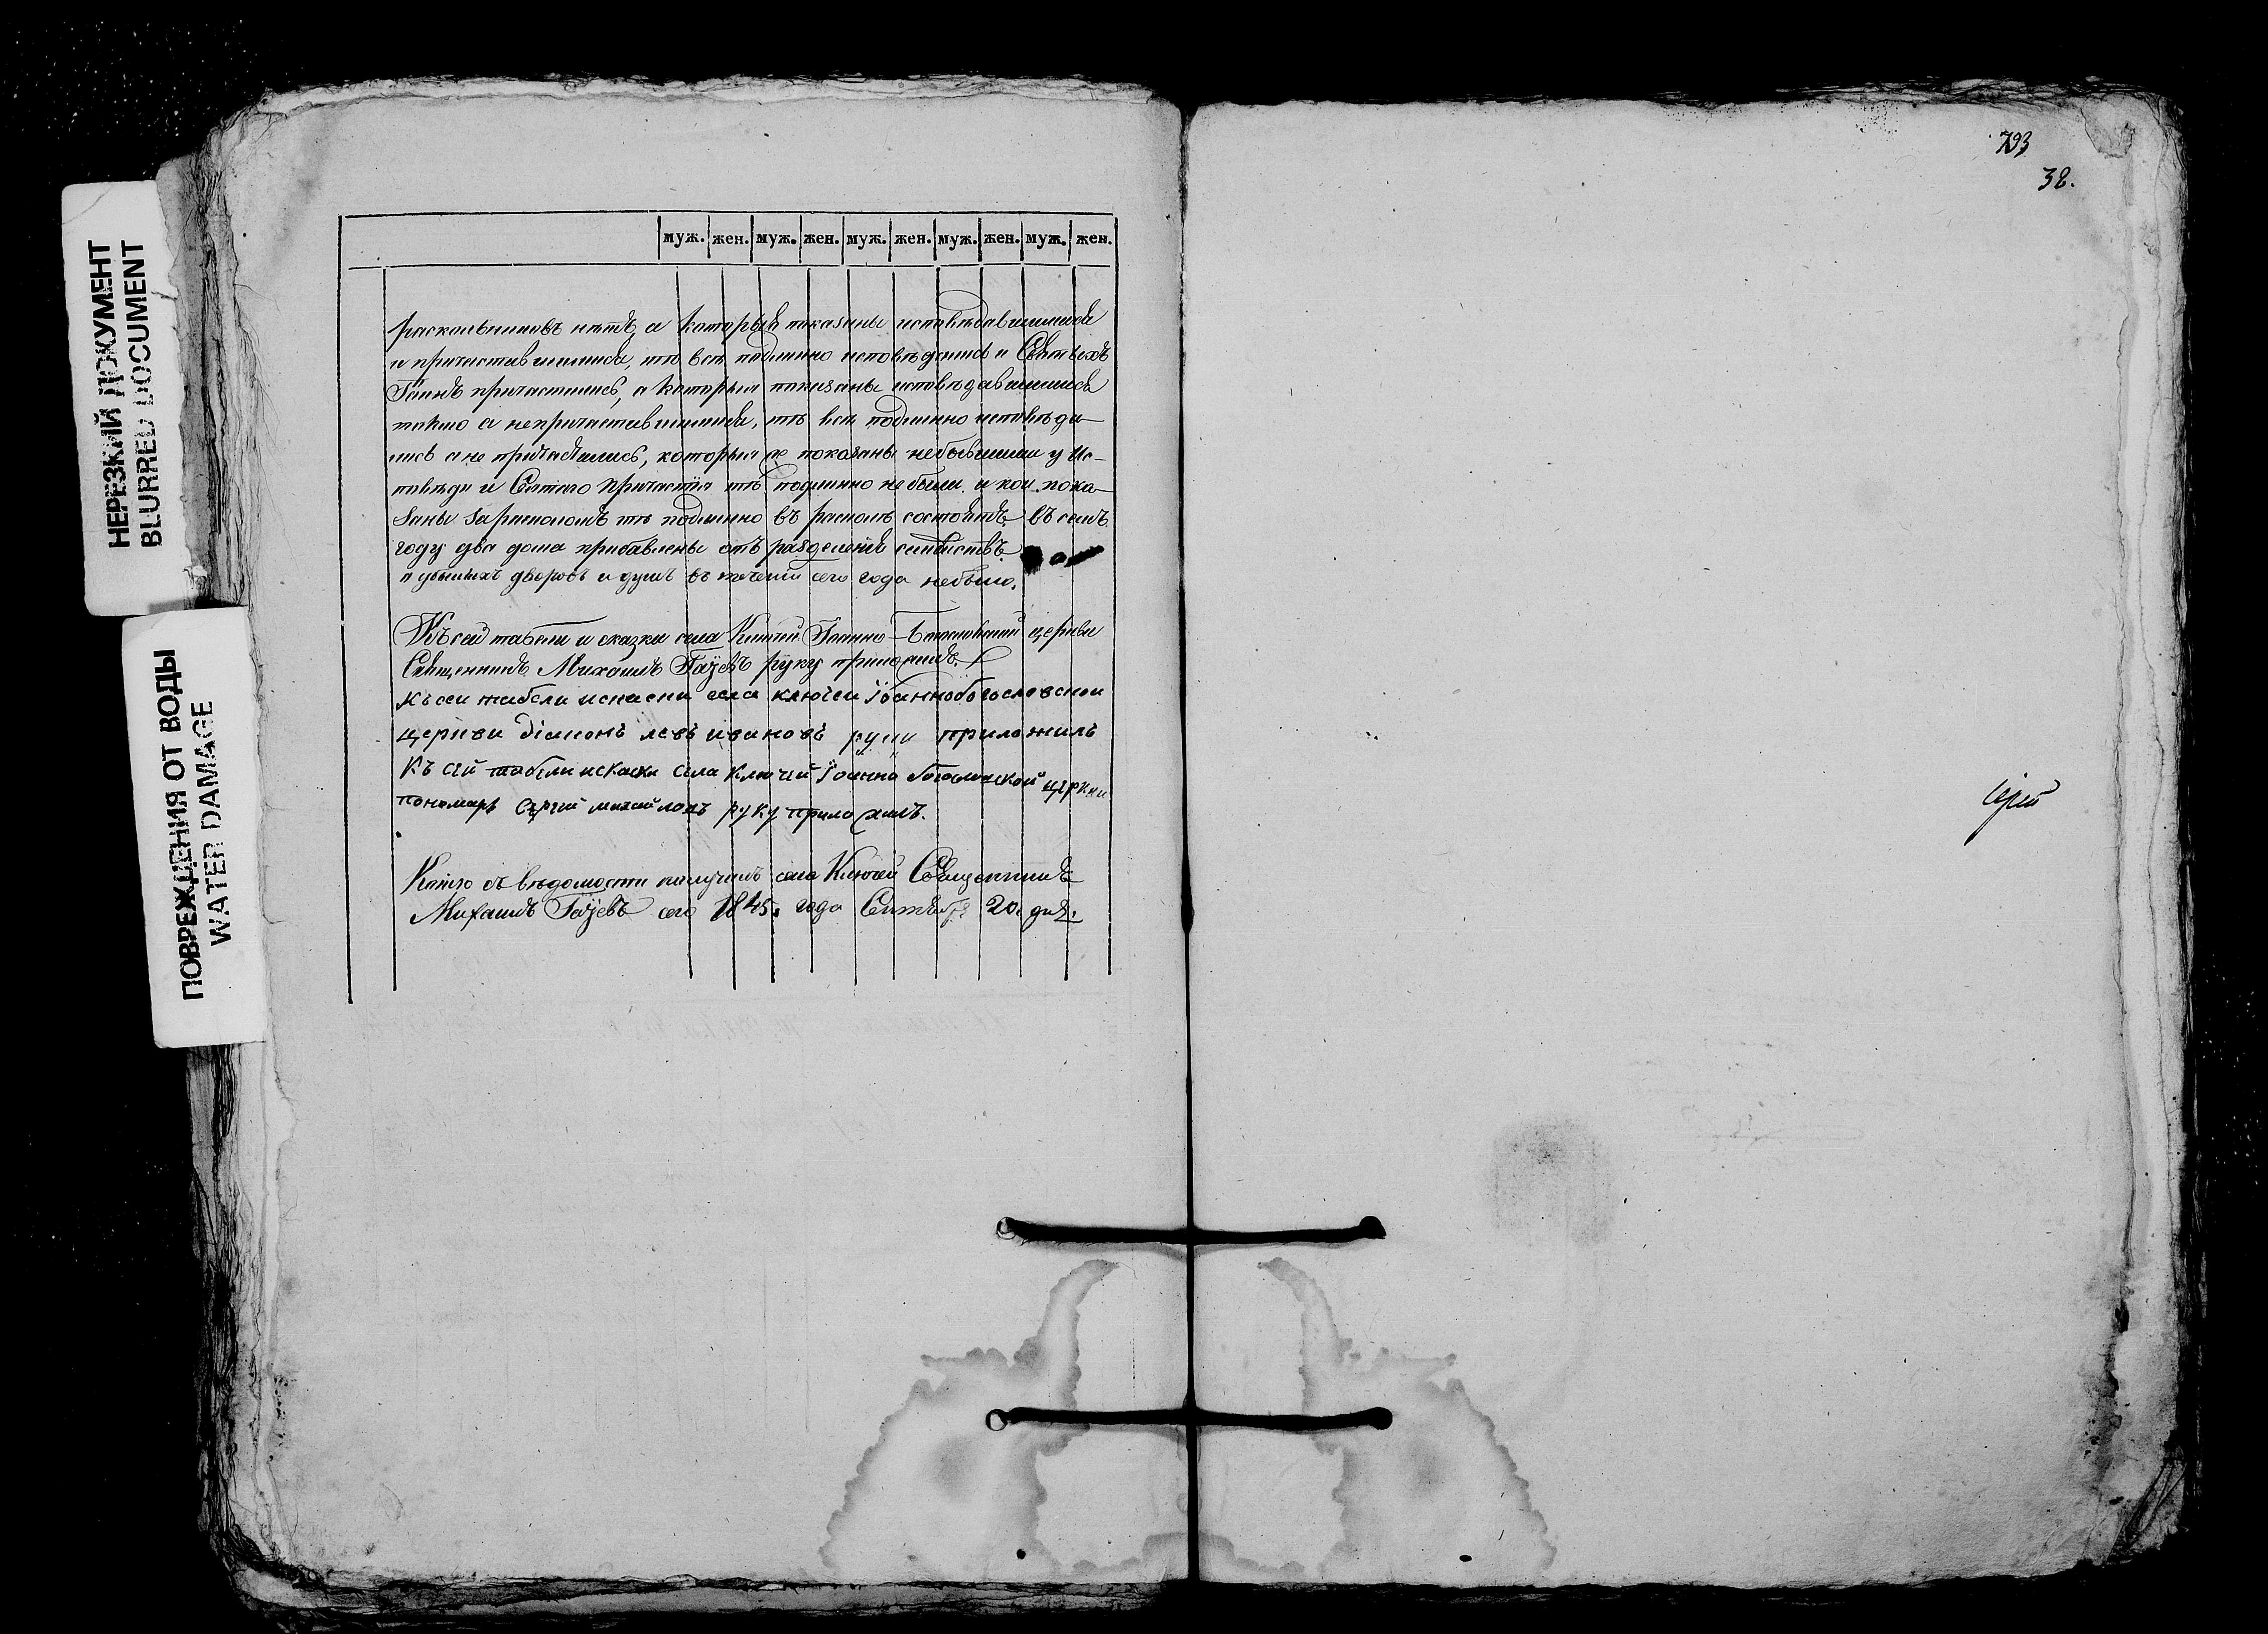 НЕРЕЗКИЙ ДОКУМЕНТ
BLURRED DOCUMENT
ПОВРЕЖДЕНИЯ ОТ ВОДЫ
WATER DAMAGE
793
38.
муж. жен. муж. жен. муж. жен. муж. жен. муж. жен.
раскольниковъ нѣтъ, а которыя показаны исповѣдавшимися
и причастившимися, тѣ всѣ подлинно исповѣдались и Святыхъ
Таинъ причастились, а которыя показаны исповѣдавшимися
токмо а непричастившимися, тѣ всѣ подлинно исповѣда-
лись а не причастились, которыя же показаны небывшими у Ис-
повѣди и Святаго Причастія тѣ подлинно небыли. и кои пока-
заны за расколомъ тѣ подлинно въ расколѣ состоятъ. въ семъ
году два дома прибавлены отъ разделенія семействъ
и убылыхъ дворовъ и душъ въ теченіи сего года небыло.
Къ сей табели и сказки села Ключей Іоанно-Богословской церкви
Священникъ Михаилъ руку приложилъ.
Къ сеи табели искаски села ключеи Іоаннобогословскои
церкви діаконъ левъ ивановъ руку приложилъ
Къ сей табели искаски села Ключей Іоанно богословской церкви
пономарь Сергей михайловъ руку приложилъ.
Копію съ вѣдомости получилъ села Ключей Священникъ
Михаилъ сего 1845. года Сентября 20. дня.